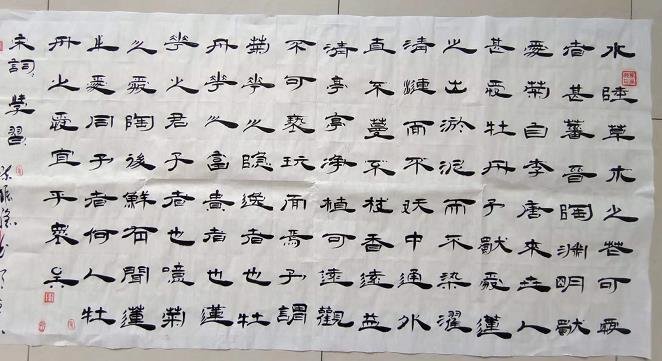 水陸草木之花可愛
者甚蕃晉陶渊明獨
愛菊自李唐来世人
甚愛牡丹予獨愛蓮
之出淤泥而不染濯
清漣而不妖中通外
直不蔓不枝香遠益
清亭亭净植可遠觀
不可褻玩而焉予謂
菊華之隐逸者也牡
丹華之富貴者也蓮
華之君子者也噫菊
之愛陶後鮮有聞蓮
之愛同予者何人牡
丹之愛宜乎衆矣
宋詞學習